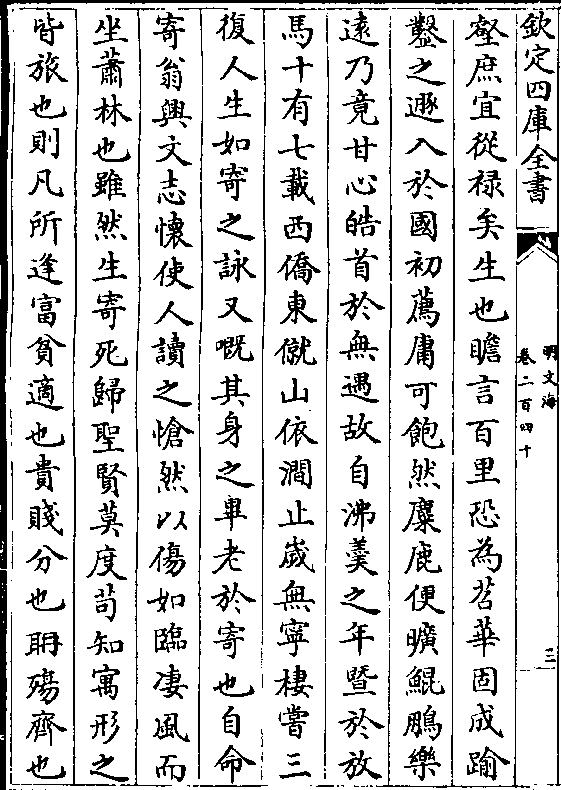 欽定四庫全書
明文海
卷二百四十
三
壑庶宜從禄矣生也瞻言百里恐為苕華固成踰
鑿之遯入於國初薦庸可飽然麋鹿便曠鯤鵬樂
遠乃竟甘心皓首於無遇故自沸羹之年暨於放
馬十有七載西僑東僦山依澗止歲無寧棲嘗三
復人生如寄之詠又嘅其身之畢老於寄也自命
寄翁興文志懷使人讀之愴然以傷如臨凄風而
坐蕭林也雖然生寄死歸聖賢莫度茍知寓形之
皆旅也則凡所逢富貧適也貴賤分也耼殤齊也